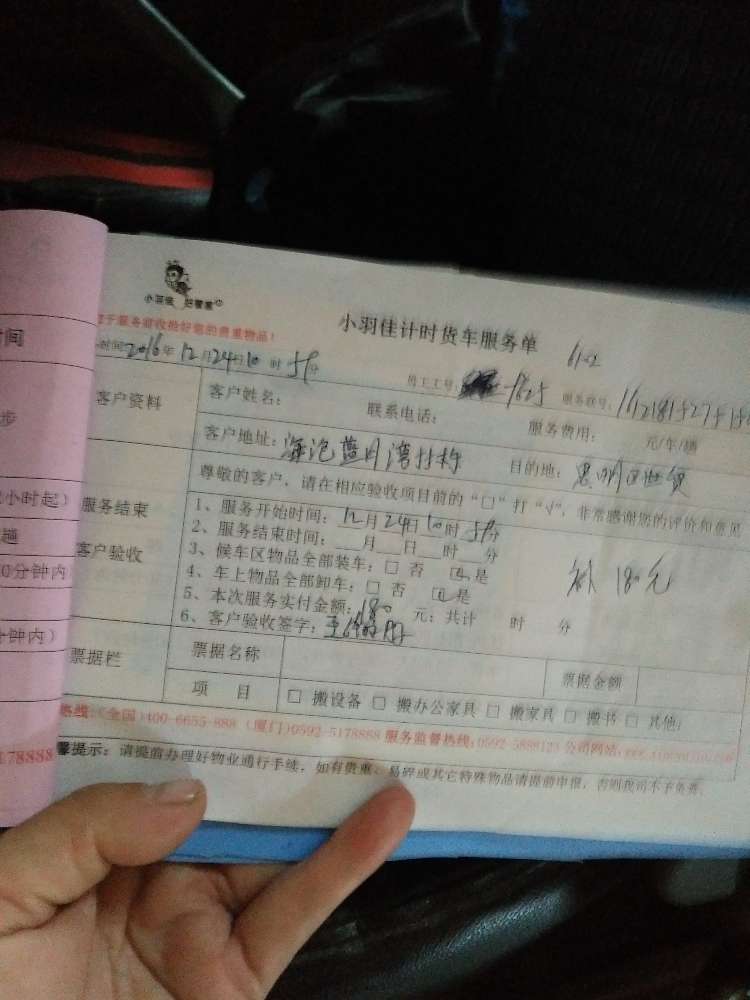 小羽佳 好管家
小羽佳计时货车服务单
于服务前收拾好您的贵重物品!
时间2016年12月24日10时59分
员工工号: 1625 服务单号:
客户资料 客户姓名: 联系电话: 服务费用: 元/车/趟
客户地址: 海沧蓝月湾 目的地: 思明区
尊敬的客户, 请在相应验收项目前的“□”打“√”, 非常感谢您的评价和意见
小时起)
服务结束
客户验收
1、服务开始时间: 12月24日10时59分
2、服务结束时间: 月 日 时 分
3、候车区物品全部装车: □ 否 □ 是
4、车上物品全部卸车: □ 否 □ 是
5、本次服务实付金额: 180 元; 共计 时 分
补 180元
6、客户验收签字:
0分钟内
分钟内)
票据栏 票据名称 票据金额
项 目 □ 搬设备 □ 搬办公家具 □ 搬家具 □ 搬书 □ 其他:
热线: (全国)400-6655-888 (厦门)0592-5178888 服务监督热线: 0592-5888123 公司网站:
178888
馨提示: 请提前办理好物业通行手续, 如有贵重、易碎或其它特殊物品请提前申报, 否则我司不予负责。